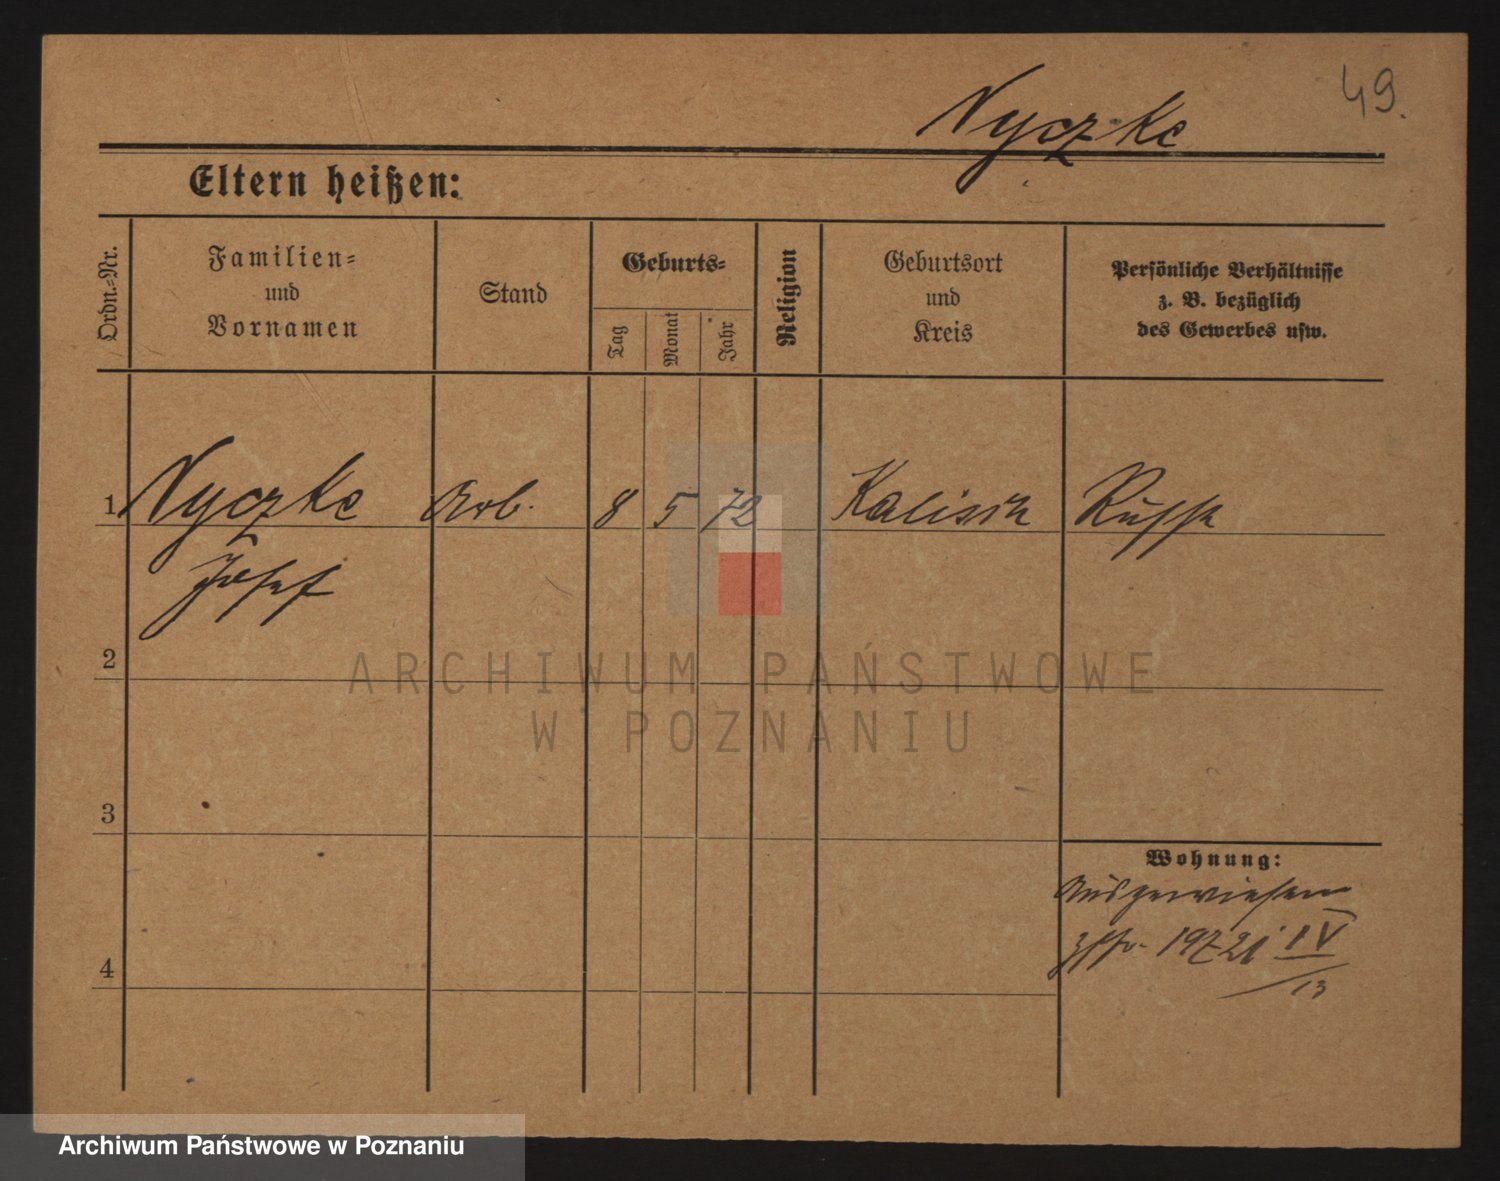 49.
Nyczke
Eltern heißen:
Ordn.-Nr.
Familien-
und
Vornamen
Stand
Geburts-
Tag
Monat
Jahr
Religion
Geburtsort
und
Kreis
Persönliche Verhältnisse
z. B. bezüglich
des Gewerbes usw.
1 Nyczke Arb. 8 5 72 Kalisch Russe
Josef
2
3
4
Wohnung:
Ausgewiesen
IV
13
ARCHIWUM PAŃSTWOWE
W POZNANIU
Archiwum Państwowe w Poznaniu